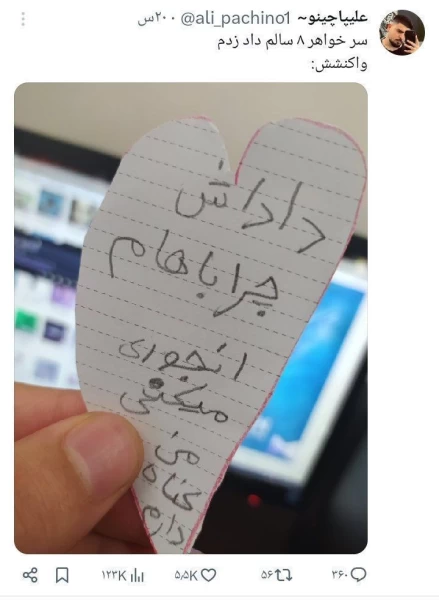 علیپاچینو~ @ali_pachino1 · ۲۰س
سر خواهر ۸ سالم داد زدم
واکنشش:
داداش
چرا باهام
انجوری
میکنی
من
گناه
دارم
۳۶۰ ۵۶ ۵٫۵K ۱۲۳K